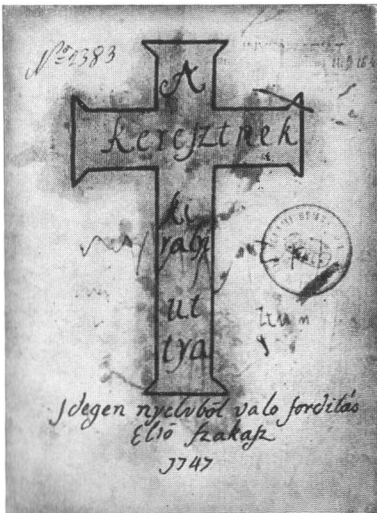 No 2383
A
kereſztnek
ki
ralyi
ut
tya
Idegen nyelvből valo forditás
Elsö ſzakaſz
1747